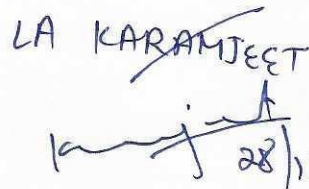 LA KARAMJEET
28/1